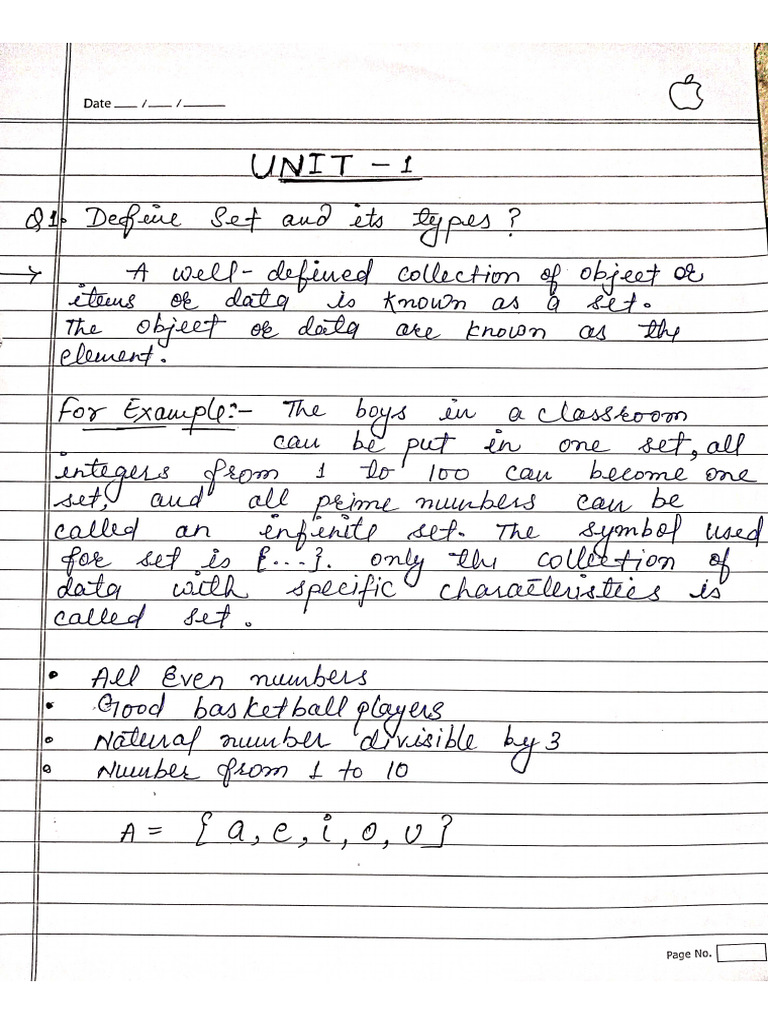 Date ___ / ___ / _____
UNIT - 1
Q1. Define Set and its types?
→ A well-defined collection of object or
items or data is known as a set.
The object or data are known as the
element.
For Example:- The boys in a classroom
can be put in one set, all
integers from 1 to 100 can become one
set, and all prime numbers can be
called an infinite set. The symbol used
for set is {...}. only the collection of
data with specific characteristics is
called set.
• All Even numbers
• Good basketball players
• Natural number divisible by 3
• Number from 1 to 10
A = { a, e, i, o, u }
Page No.